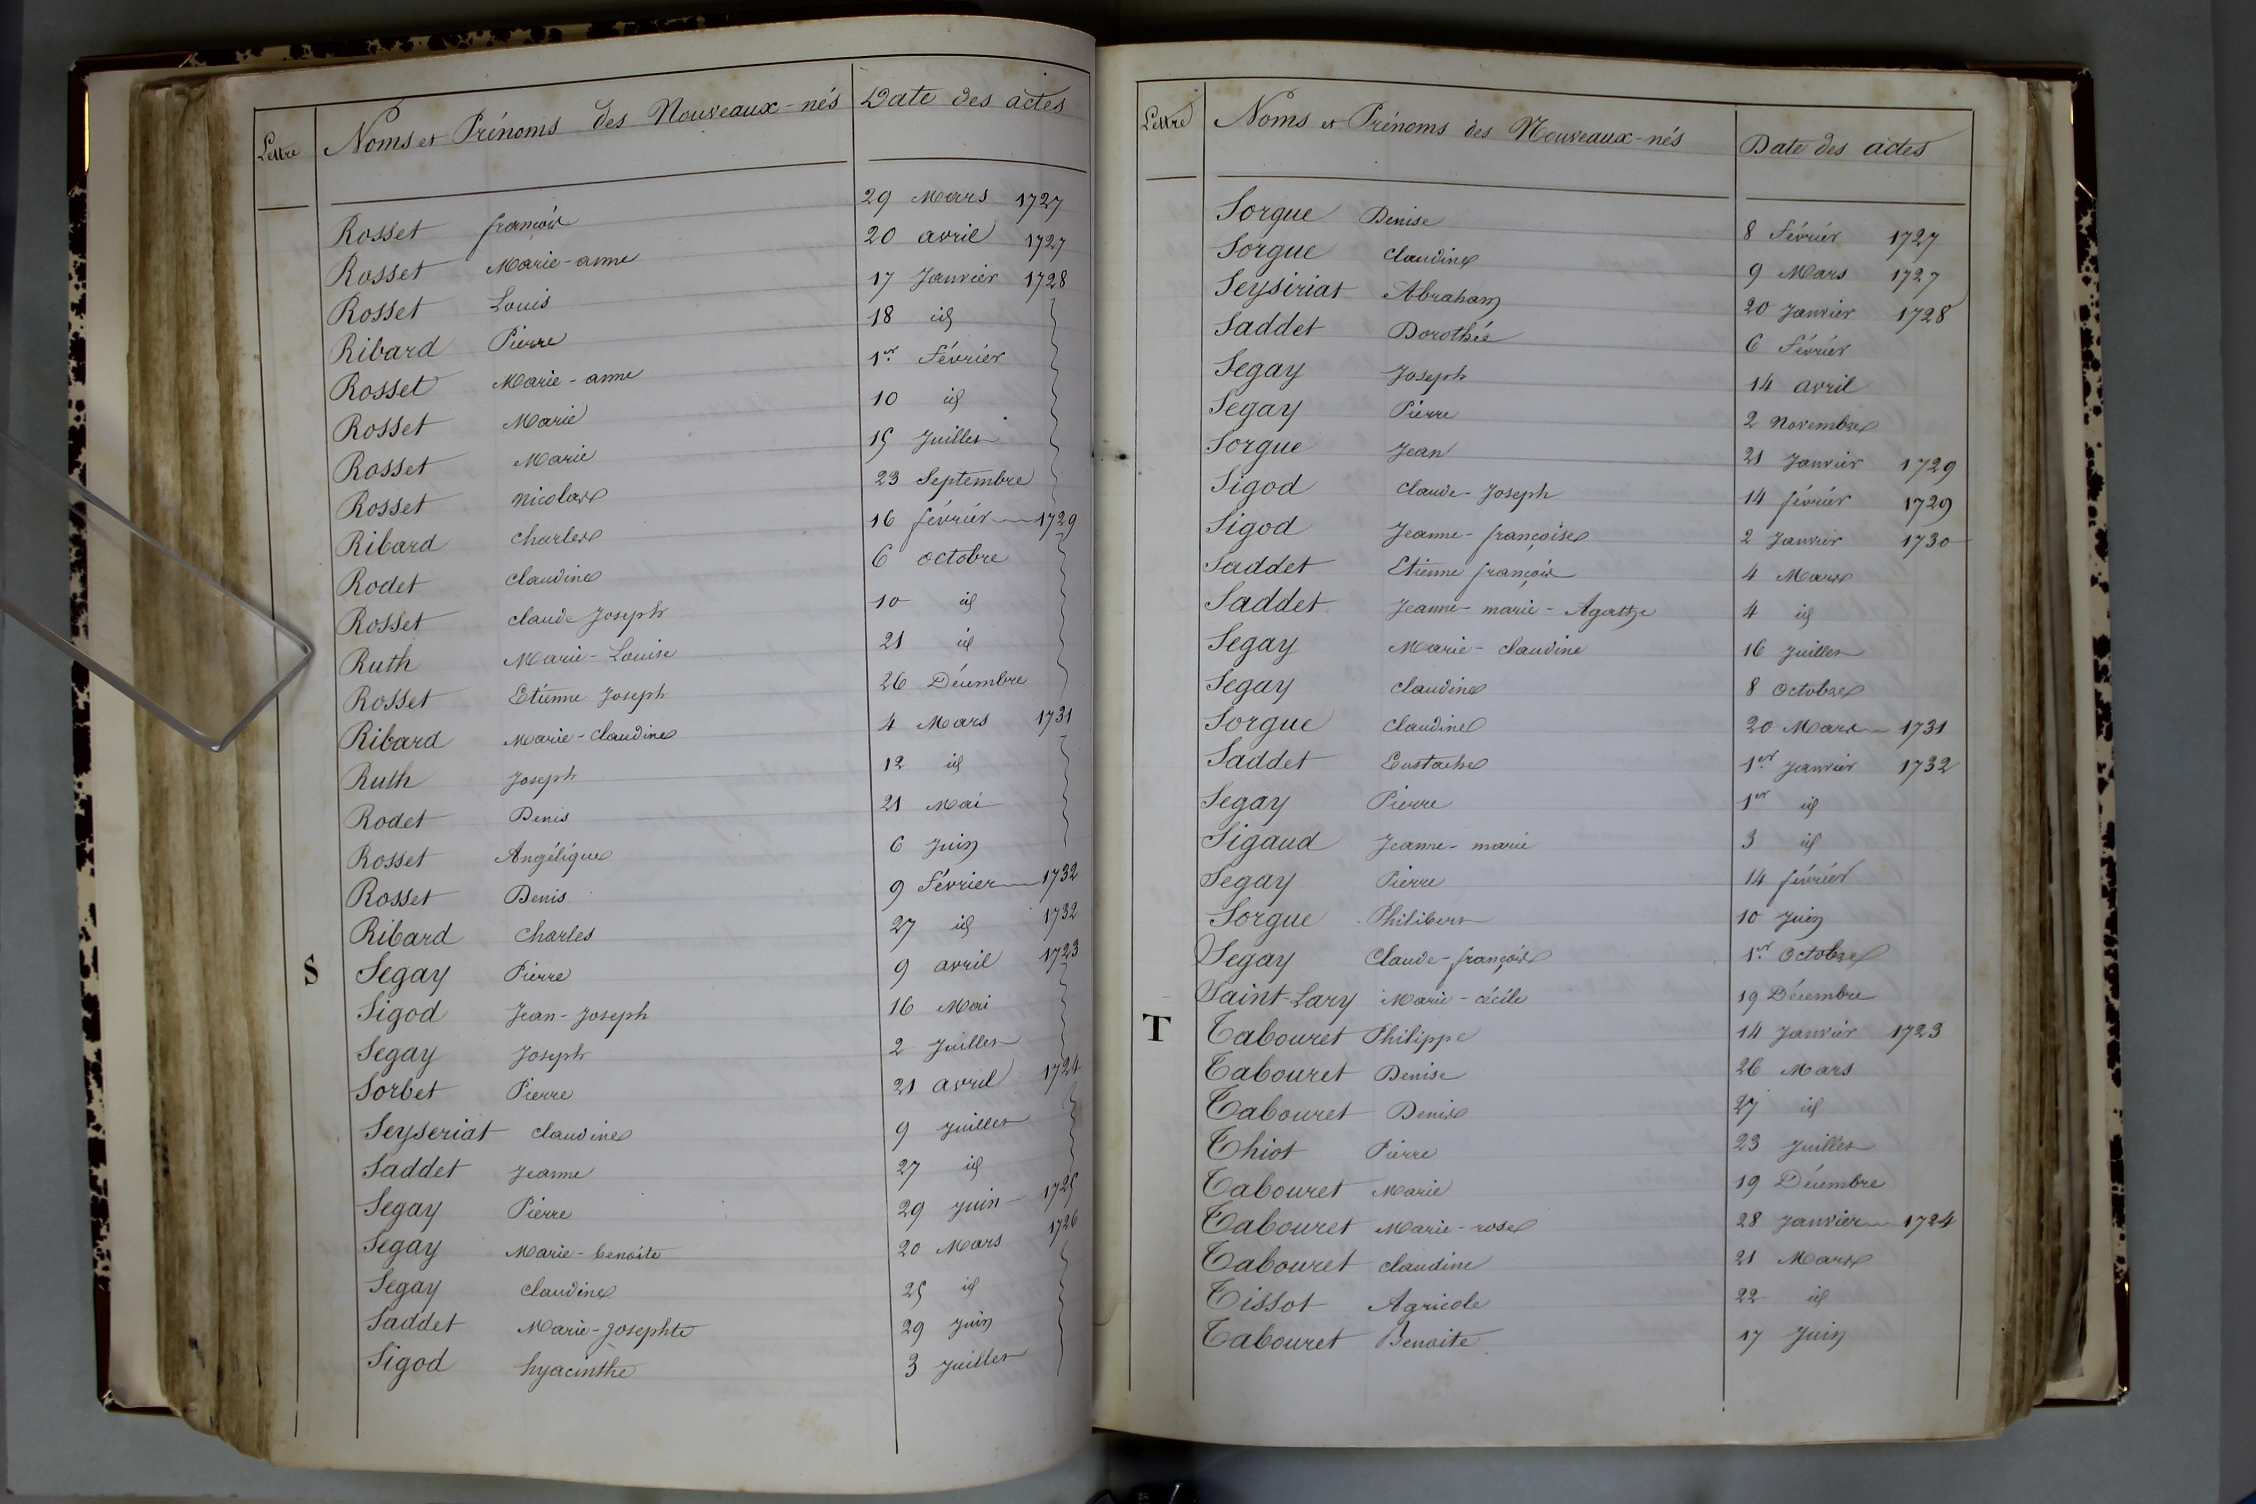 Lettre Noms et Prénoms des Nouveaux-nés Date des actes
Rosset françois 29 Mars 1727
Rosset Marie-anne 20 avril 1727
Rosset Louis 17 Janvier 1728
Ribard Pierre 18 id
Rosset Marie-anne 1er Février
Rosset Marie 10 id
Rosset Marie 15 Juillet
Rosset Nicolas 23 Septembre
Ribard Charles 16 février 1729
Rodet Claudine 6 octobre
Rosset Claude Joseph 10 id
Ruth Marie-Louise 21 id
Rosset Etienne Joseph 26 Décembre
Ribard Marie-Claudine 4 Mars 1731
Ruth Joseph 12 id
Rodet Denis 21 Mai
Rosset Angélique 6 Juin
Rosset Denis 9 Février 1732
Ribard Charles 27 id 1732
S Segay Pierre 9 avril 1723
Sigod Jean-Joseph 16 Mai
Segay Joseph 2 Juillet
Sorbet Pierre 21 avril 1724
Seyseriat Claudine 9 Juillet
Saddet Jeanne 27 id
Segay Pierre 29 Juin 1725
Segay Marie-benoite 20 Mars 1726
Segay Claudine 25 id
Saddet Marie-Josephte 29 Juin
Sigod hyacinthe 3 Juillet
Lettre Noms et Prénoms des Nouveaux-nés Date des actes
Sorgue Denise 8 Février 1727
Sorgue Claudine 9 Mars 1727
Seysiriat Abraham 20 Janvier 1728
Saddet Dorothée 6 Février
Segay Joseph 14 avril
Segay Pierre 2 Novembre
Sorgue Jean 21 Janvier 1729
Sigod Claude-Joseph 14 février 1729
Sigod Jeanne-françoise 2 Janvier 1730
Saddet Etienne françois 4 Mars
Saddet Jeanne-marie-Agathe 4 id
Segay Marie-Claudine 16 Juillet
Segay Claudine 8 Octobre
Sorgue Claudine 20 Mars 1731
Saddet Eustache 1er Janvier 1732
Segay Pierre 1er id
Sigaud Jeanne-marie 3 id
Segay Pierre 14 février
Sorgue Philibert 10 Juin
Segay Claude-françois 1er Octobre
Saint-Lary Marie-Cécile 19 Décembre
T Tabouret Philippe 14 Janvier 1723
Tabouret Denise 26 Mars
Tabouret Denise 27 id
Thiot Pierre 23 Juillet
Tabouret Marie 19 Décembre
Tabouret Marie-rose 28 Janvier 1724
Tabouret Claudine 21 Mars
Tissot Agricole 22 id
Tabouret Benoite 17 Juin